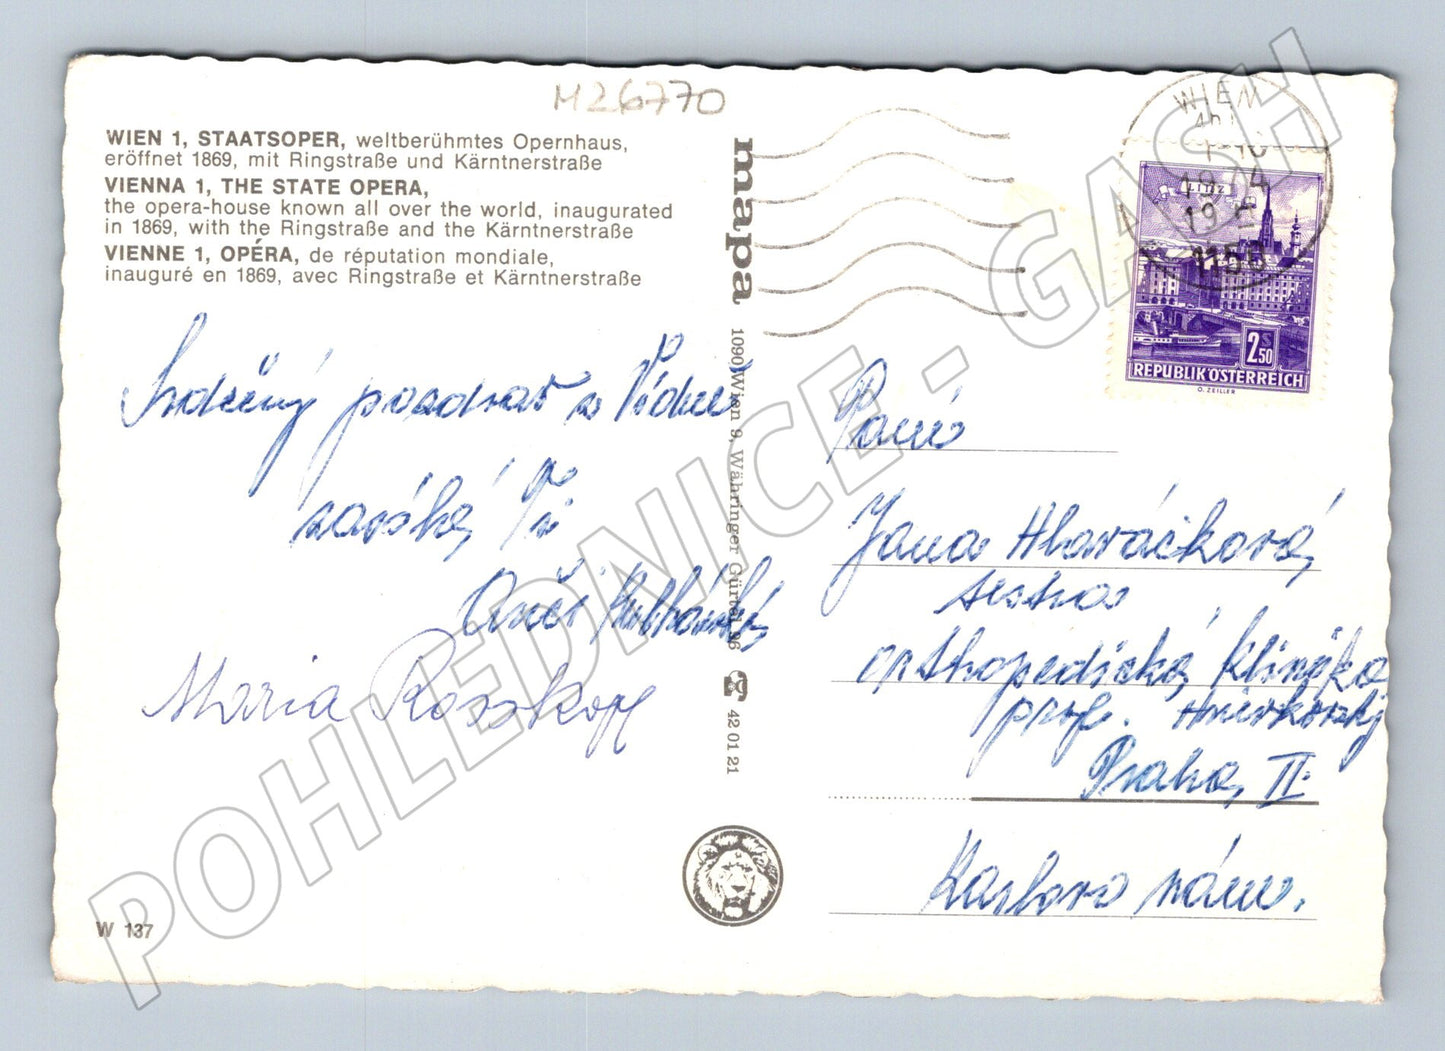 M26770
WIEN 1, STAATSOPER, weltberühmtes Opernhaus,
eröffnet 1869, mit Ringstraße und Kärntnerstraße
VIENNA 1, THE STATE OPERA,
the opera-house known all over the world, inaugurated
in 1869, with the Ringstraße and the Kärntnerstraße
VIENNE 1, OPÉRA, de réputation mondiale,
inauguré en 1869, avec Ringstraße et Kärntnerstraße
Srdečný pozdrav z Vídně
zasílá
Maria Rosskopf
W 137
mapa
1090 Wien 9, Währinger Gürtel 96
42 01 21
WIEN
1150
LINZ
2.50
S
REPUBLIK ÖSTERREICH
O. ZEILLER
Paní
Jana Hlaváčková
sestra
orthopedická klinika
prof. Hněvkovský
Praha, II.
Karlovo nám.
POHLEDNICE - GASH